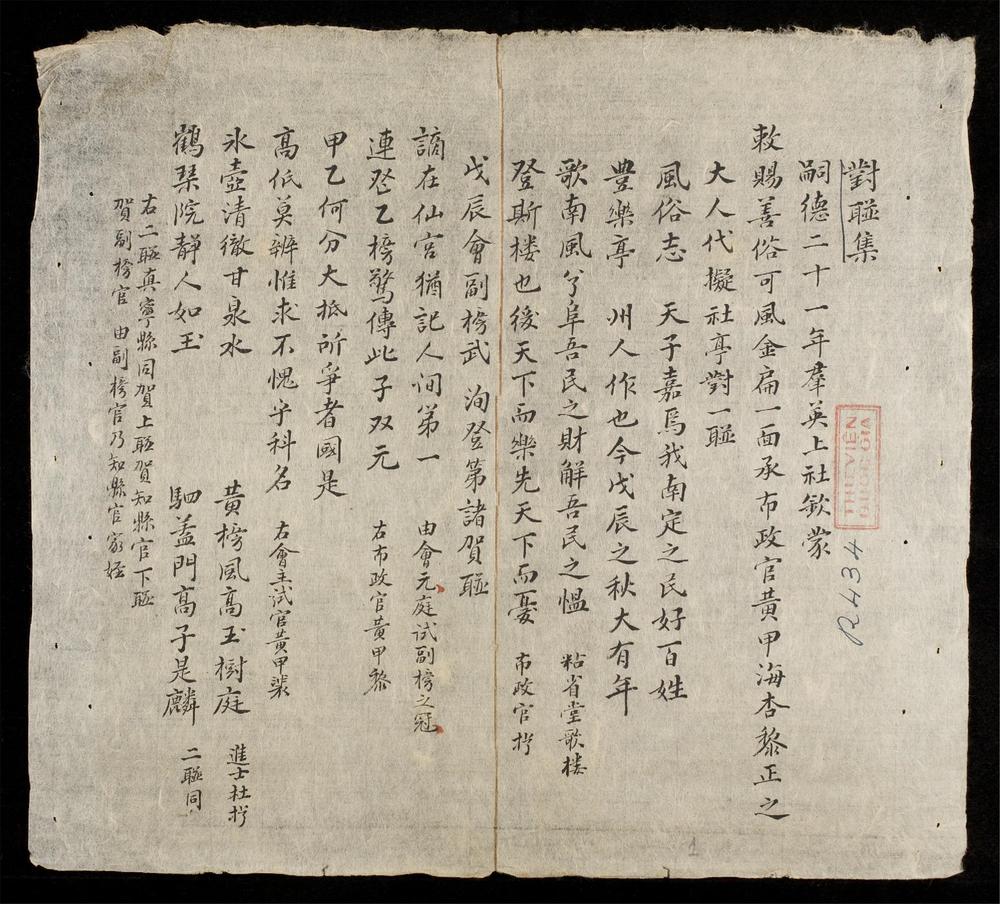 對聯集
嗣德二十一年羣英上社欽蒙
敕賜善俗可風金扁一面承布政官黃甲海杏黎正之
大人代擬社亭對一聯
風俗志 天子嘉焉我南定之民好百姓
豊樂亭 州人作也今戊辰之秋大有年
歌南風兮阜吾民之財解吾民之慍 粘省堂歌楼
登斯楼也後天下而樂先天下而憂 布政官拧
戊辰會副榜武洵登第諸賀聯
謫在仙宫猶記人间第一 由會元庭試副榜之冠
連登乙榜驚傳此子双元 右布政官黃甲黎
甲乙何分大抵所爭者國是
高低莫辨惟求不愧乎科名 右會主試官黃甲裴
氷壺清徹甘泉水 黃榜風高玉樹庭 進士杜拧
鶴琹院靜人如玉 駟盖門高子是麟 二聯同
右二聯真寧縣同賀上聯賀知縣官下聯
賀副榜官 由副榜官乃知縣官家姪
THƯ VIỆN
QUỐC GIA
R434
1